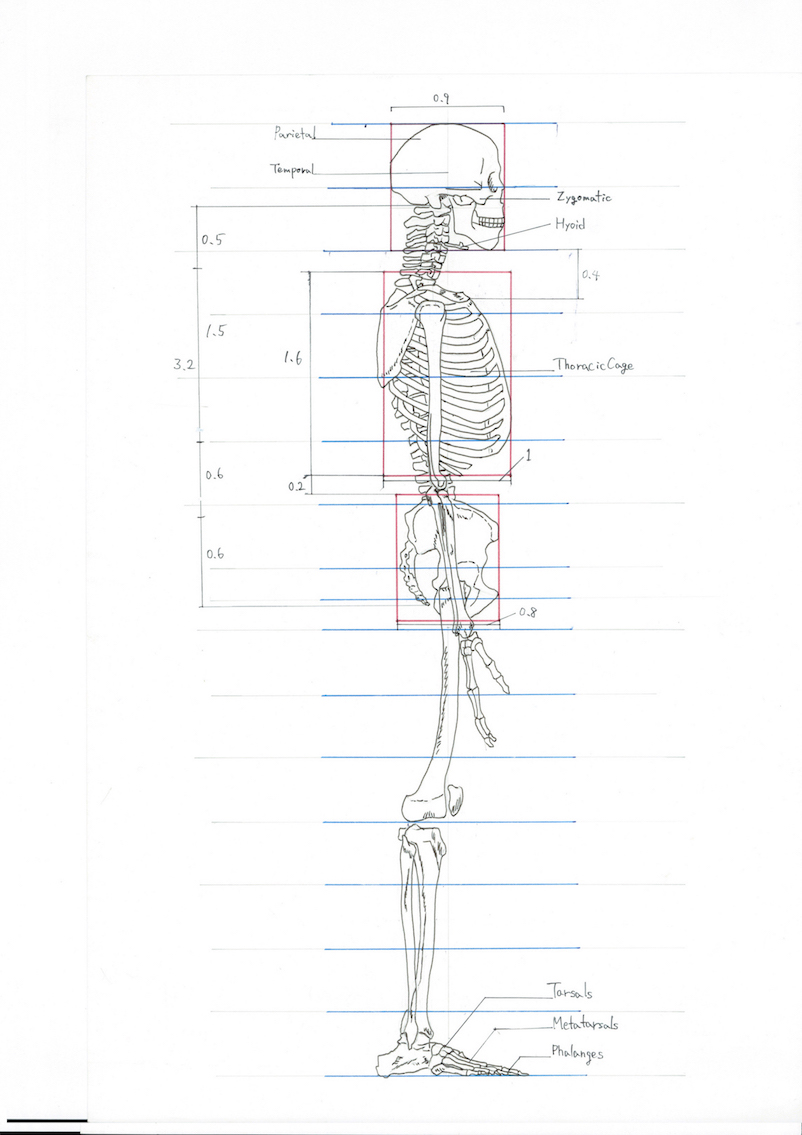 0.9
Parietal
Temporal
Zygomatic
Hyoid
0.5
0.4
1.5
3.2
1.6
Thoracic Cage
1
0.6
0.2
0.6
0.8
Tarsals
Metatarsals
Phalanges